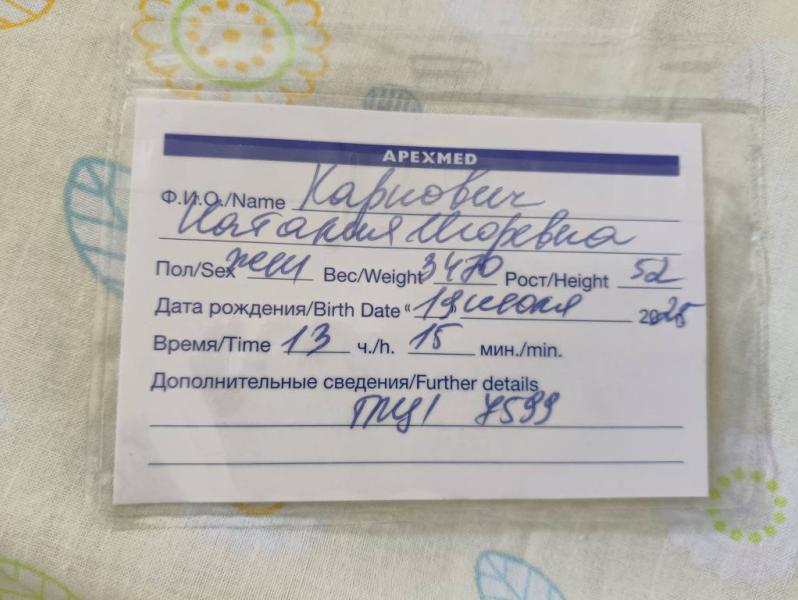 APEXMED
Ф.И.О./Name Карпович
Наталия Игоревна
Пол/Sex жен Вес/Weight 3470 Рост/Height 52
Дата рождения/Birth Date " 19 июля 2025
Время/Time 13 ч./h. 15 мин./min.
Дополнительные сведения/Further details
7599